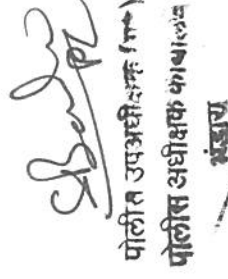 पोलीस उपअधीक्षक (गृह)
पोलीस अधीक्षक कार्यालय
भंडारा